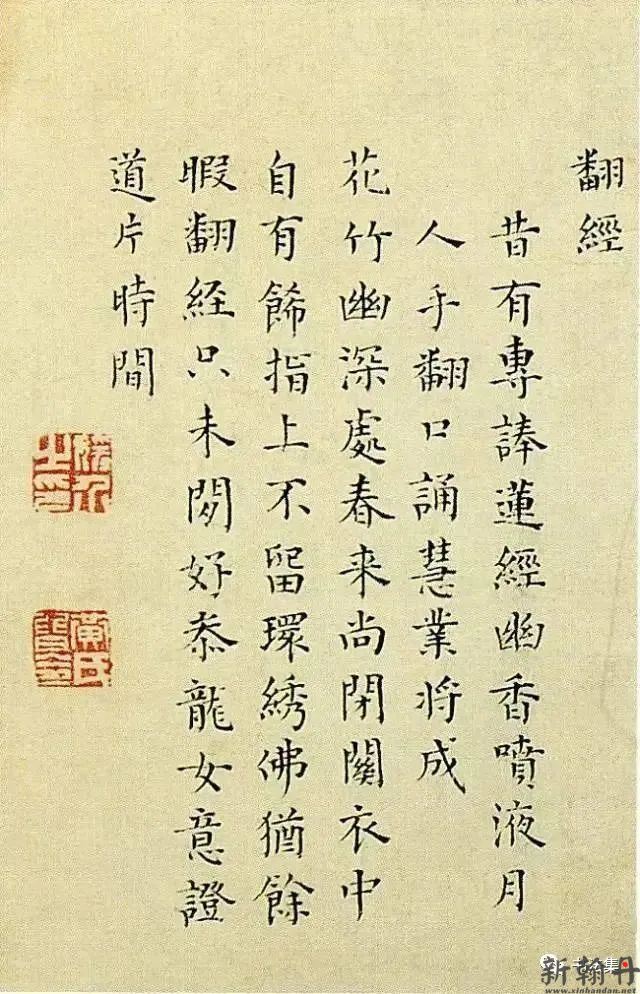 翻經
昔有專蓮經幽香噴液月
人手翻口誦慧業將成
花竹幽深處春来尚閉關衣中
自有餙指上不留環綉佛猶餘
暇翻経只未閒好叅龍女意證
道片時間
新翰丹
www.xinhandan.net